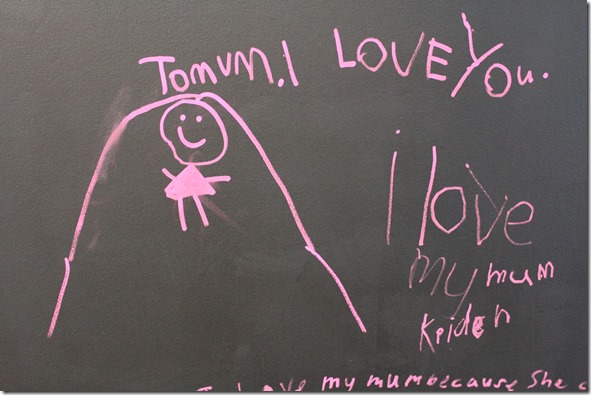 TomUM. I LOVE YOU.
i love
my mum
Keiden
I Love my mum because She c